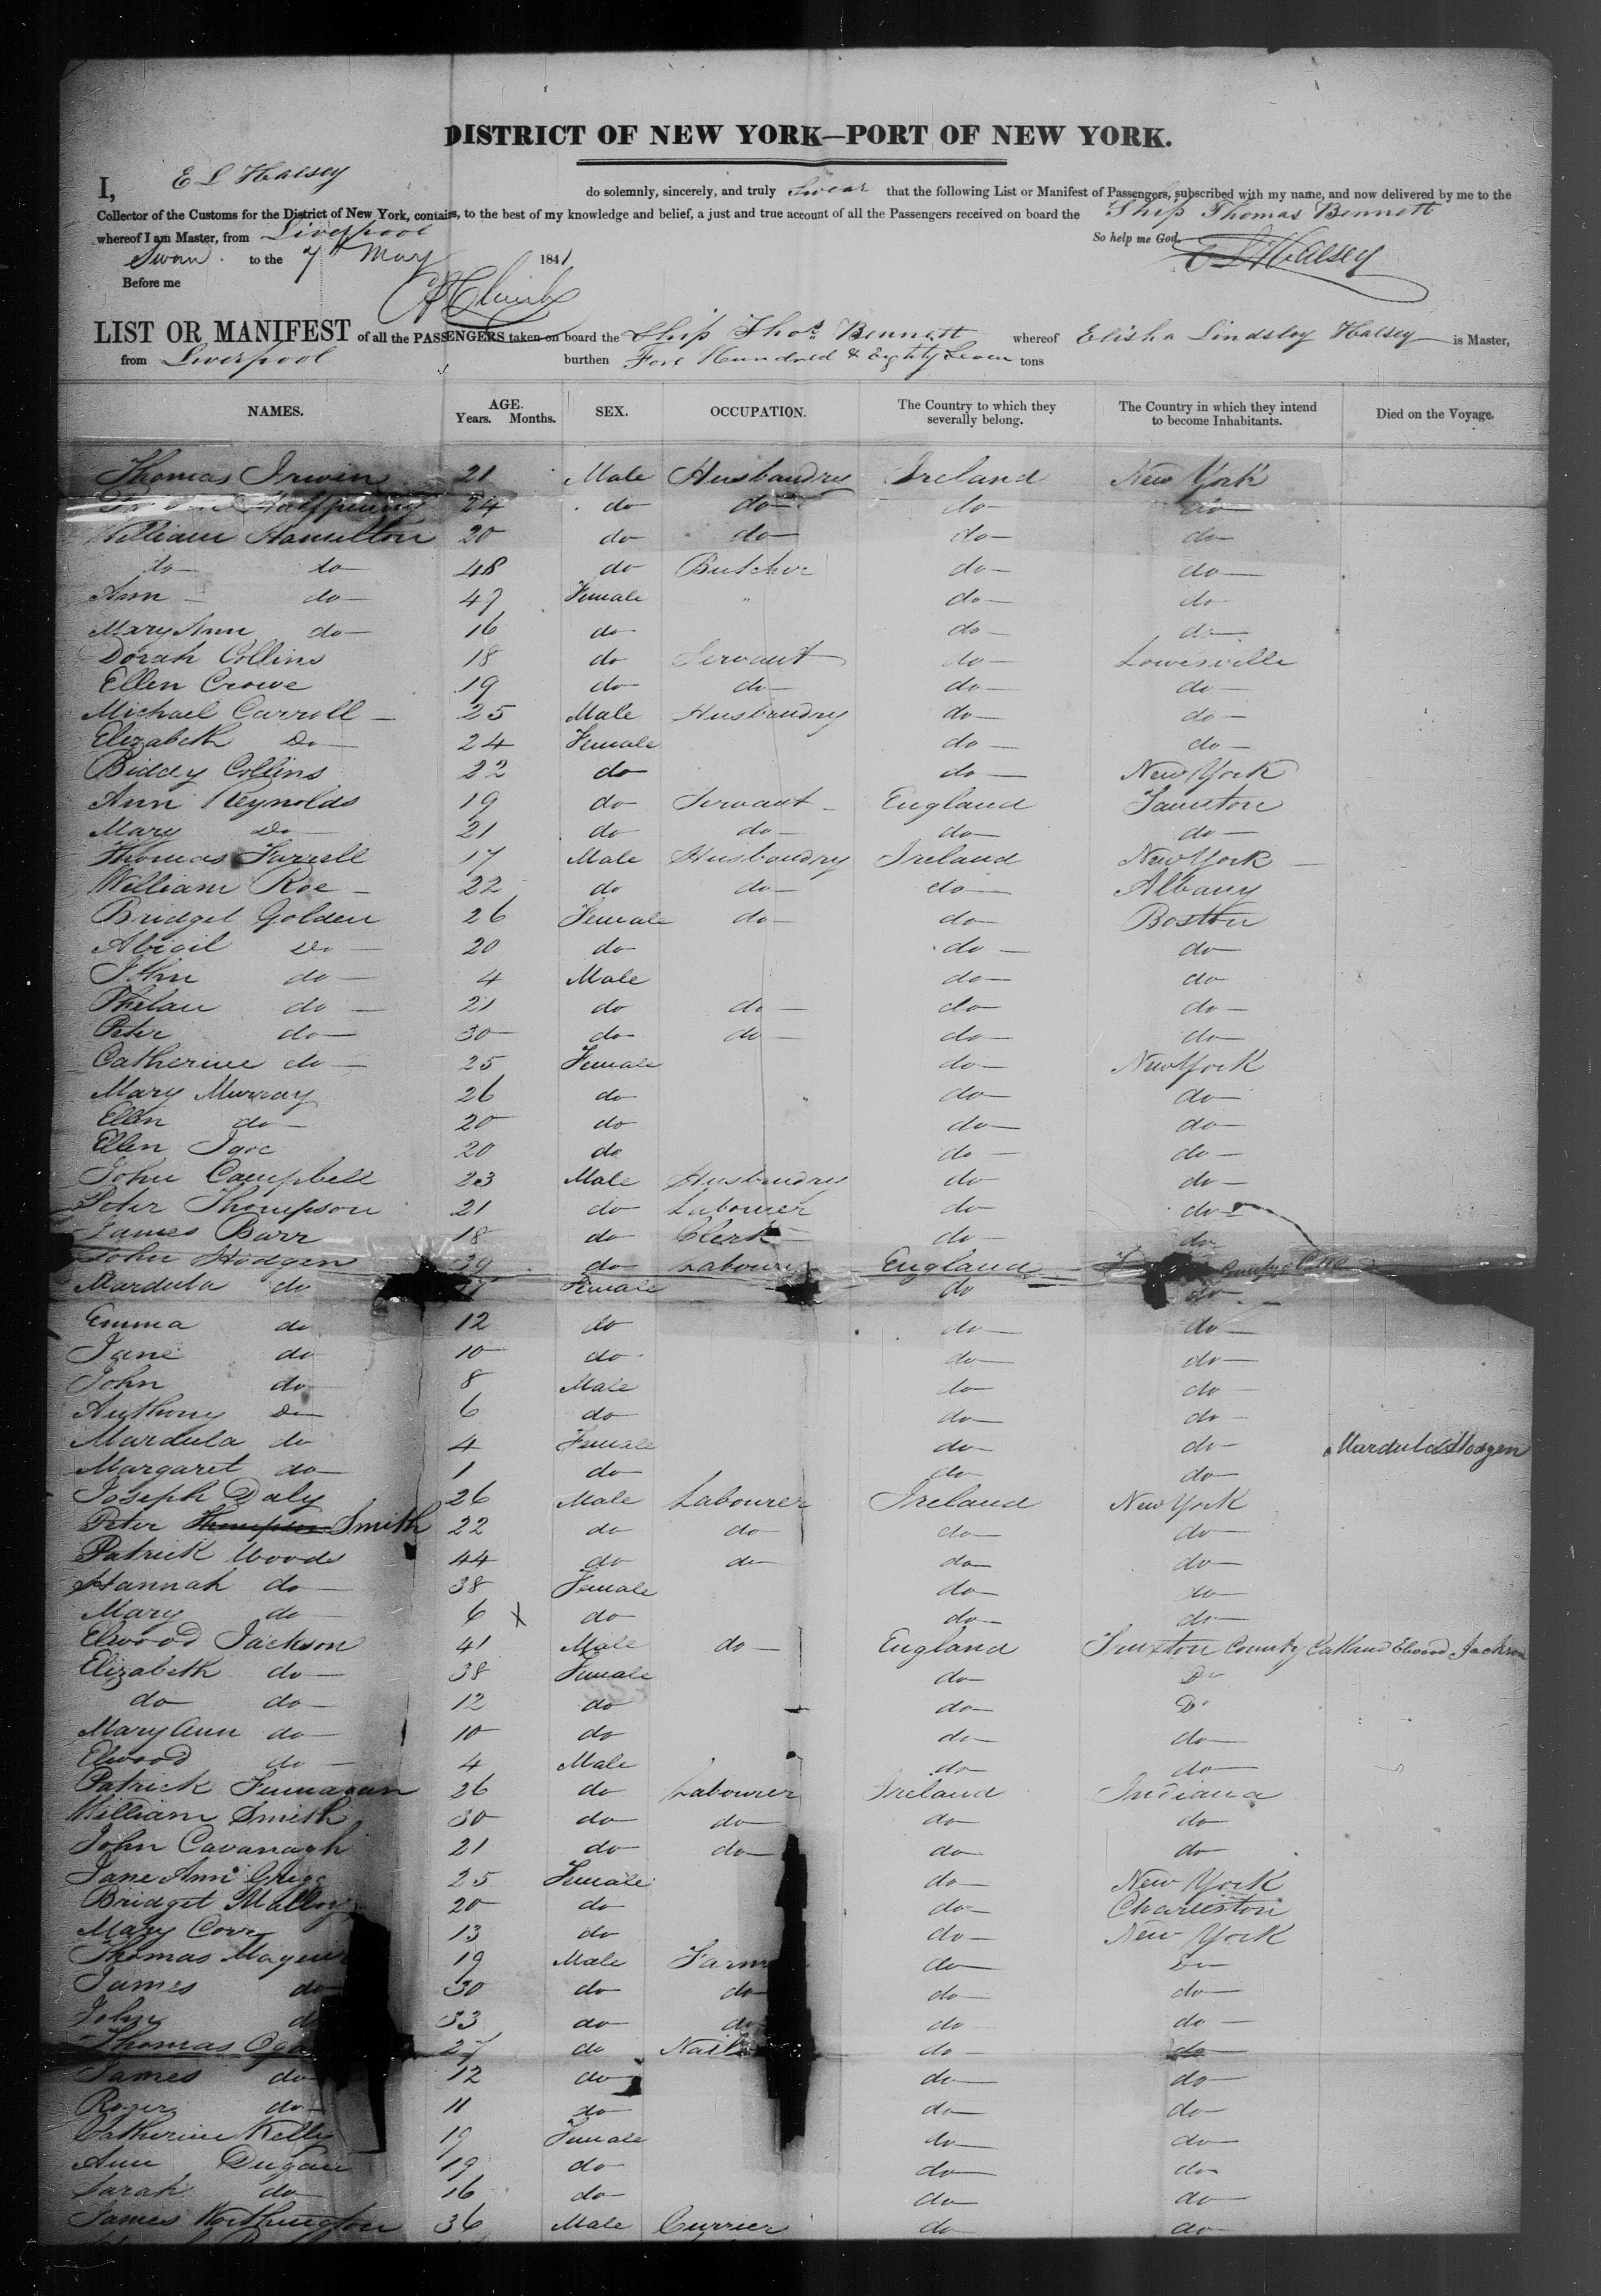 DISTRICT OF NEW YORK—PORT OF NEW YORK.
I, E L Halsey do solemnly, sincerely, and truly Swear that the following List or Manifest of Passengers, subscribed with my name, and now delivered by me to the
Collector of the Customs for the District of New York, contains, to the best of my knowledge and belief, a just and true account of all the Passengers received on board the Ship Thomas Bennett
whereof I am Master, from Liverpool So help me God.
Sworn to the 7th May 1841 E L Halsey
Before me
LIST OR MANIFEST of all the PASSENGERS taken on board the Ship Thos. Bennett whereof Elisha Lindsley Halsey is Master,
from Liverpool burthen Four Hundred & Eighty Seven tons
NAMES. AGE. Years. Months. SEX. OCCUPATION. The Country to which they severally belong. The Country in which they intend to become Inhabitants. Died on the Voyage.
Thomas Irwin 21 Male Husbandry Ireland New York
Halfpenny 24 do do do do
William Hamilton 20 do do do do
do do 48 do Butcher do do
Ann do 47 Female " do do
Mary Ann do 16 do do do
Dorah Collins 18 do Servant do Lowisville
Ellen Crowe 19 do do do do
Michael Carroll 25 Male Husbandry do do
Elizabeth Do 24 Female do do
Biddy Collins 22 do do New York
Ann Reynolds 19 do Servant England Taunston
Mary Do 21 do do do do
Thomas Farrell 17 Male Husbandry Ireland New York
William Roe 22 do do do Albany
Bridget Golden 26 Female do do Boston
Abigil Do 20 do do do
John do 4 Male do do
Phelan do 21 do do do do
Peter do 30 do do do do
Catherine do 25 Female do New York
Mary Murray 26 do do do
Ellen do 20 do do do
Ellen 20 do do do
John Campbell 23 Male Husbandry do do
Peter Thompson 21 do Labourer do do
James Barr 18 do Clerk do do
John Hodgen 39 do Labourer England
Mardula do Female do do
Emma do 12 do do do
Jane do 10 do do do
John do 8 Male do do
Anthony Do 6 do do do
Mardula do 4 Female do do Mardula Hodgen
Margaret do 1 do do do
Joseph Daly 26 Male Labourer Ireland New York
Peter Thompson Smith 22 do do do do
Patrick Woods 44 do do do do
Hannah do 38 Female do do
Mary do 6 X do do do
Elwood Jackson 41 Male do England County Oakland Elwood Jackson
Elizabeth do 38 Female do Do
do do 12 do do Do
Mary Ann do 10 do do do
Elwood do 4 Male do do
Patrick 26 do Labourer Ireland Indiana
William Smith 30 do do do do
John Cavanagh 21 do do do do
Jane Ann Grigg 25 Female do New York
Bridget Malloy 20 do do Charleston
Mary Corr 13 do do New York
Thomas Maguire 19 Male Farm do Do
James do 30 do do do do
John do 33 do do do do
Thomas 27 do Nail do do
James do 12 do do do
Roger do 11 do do do
Catherine Kelly 19 Female do do
Ann Dugan 19 do do do
Sarah do 16 do do do
James Worthington 36 Male Currier do do